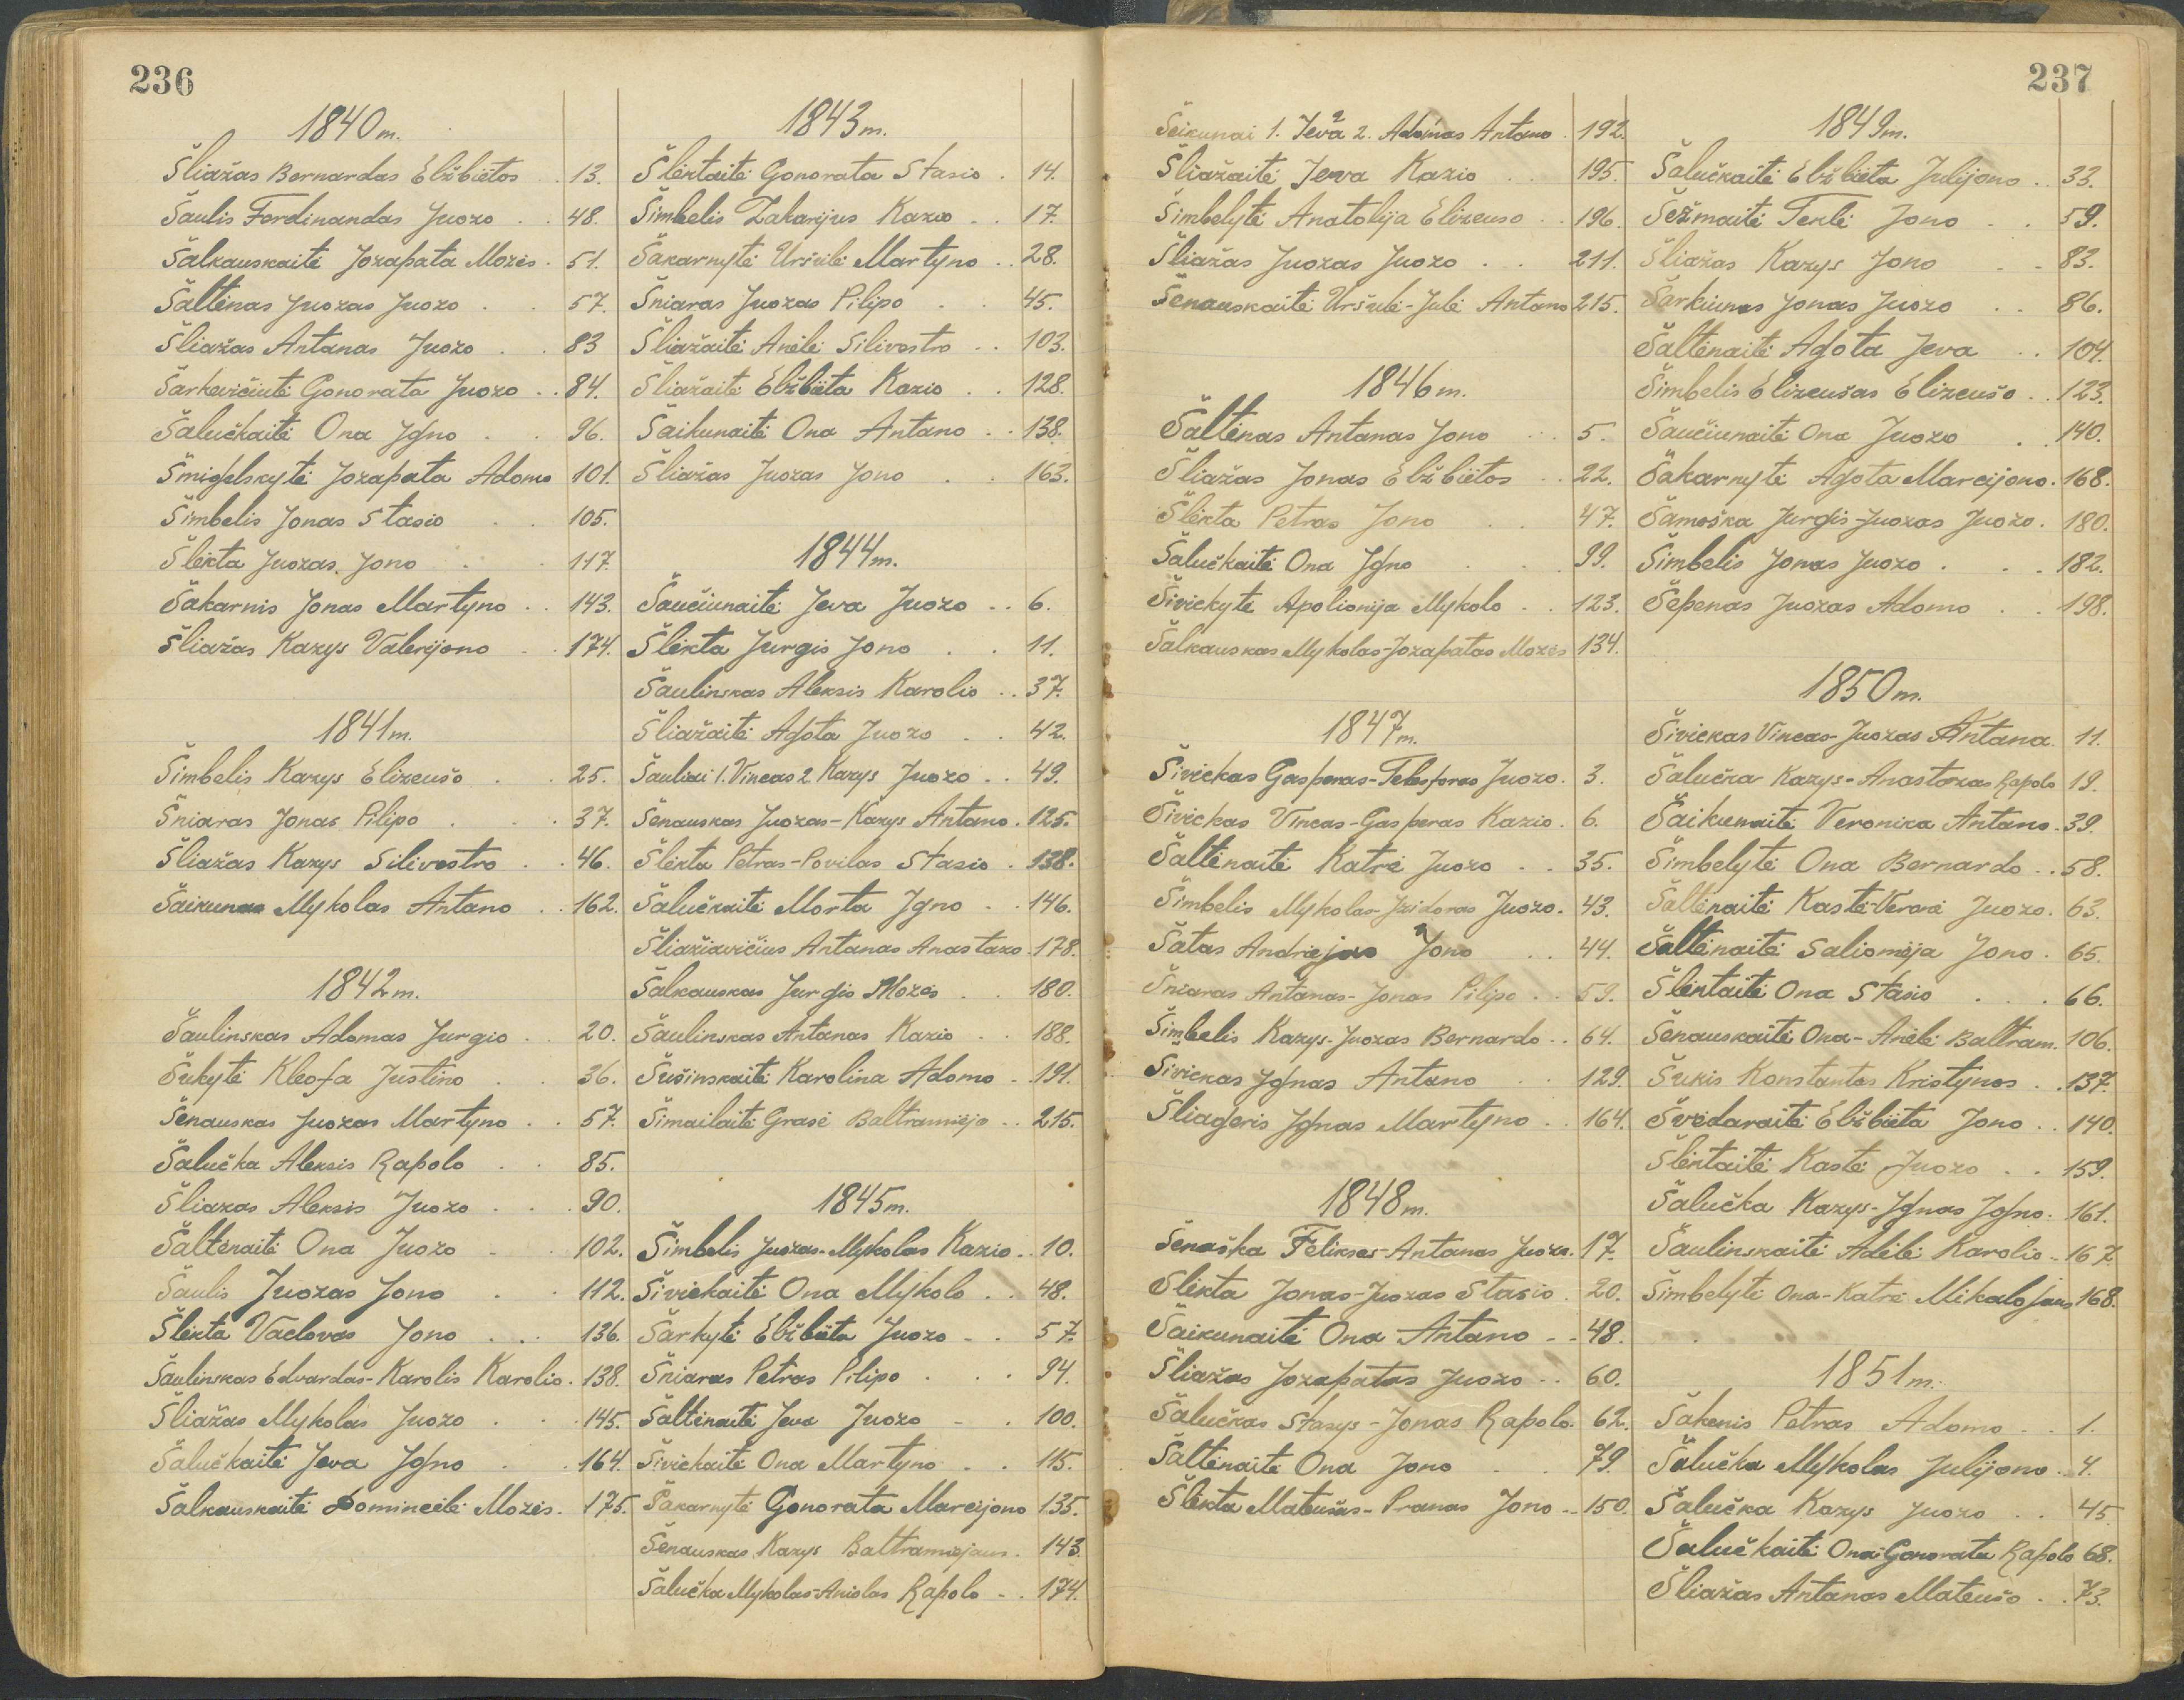 236
1840 m.
Šliažas Bernardas Elžbiėtos . 13.
Šaulis Ferdinandas Juozo . . 48.
Šalkauskaitė Jozapata Mozės . 51.
Šaltėnas Juozas Juozo . . 57.
Šliažas Antanas Juozo . . 83
Šarkevičiutė Gonorata Juozo . . 84.
Šalučkaitė Ona Igno . . 96.
Šmigelskytė Jozapata Adomo 101.
Šimbelis Jonas Stasio . . 105.
Šlekta Juozas Jono . . 117.
Šakarnis Jonas Martyno . . 143.
Šliažas Kazys Valerijono . . 174.
1841 m.
Šimbelis Kazys Elizeušo . . 25.
Šniaras Jonas Pilipo . . . 37.
Šliažas Kazys Silivestro . . 46.
Šaikunas Mykolas Antano . . 162.
1842 m.
Šaulinskas Adomas Jurgio . . 20.
Šukytė Kleofa Justino . . 36.
Šenauskas Juozas Martyno . . 57.
Šalučka Aleksis Rapolo . . 85.
Šliazas Aleksis Juozo . . . 90.
Šaltėnaitė Ona Juozo . . 102.
Šaulis Juozas Jono . . 112.
Šlekta Vaclovas Jono . . . 136.
Šaulinskas Edvardas-Karolis Karolio . 138.
Šliažas Mykolas Juozo . . . 145.
Šalučkaitė Jeva Igno . . 164.
Šalkauskaitė Domincėlė Mozės . 175.
1843 m.
Šlektaitė Gonorata Stasio . 14.
Šimbelis Zakarijus Kazio . . 17.
Šakarnytė Uršulė Martyno . . 28.
Šniaras Juozas Pilipo . . 45.
Šliažaitė Anėlė Silivestro . . 103.
Šliažaitė Elžbiėta Kazio . . 128.
Šaikunaitė Ona Antano . . 138.
Šliažas Juozas Jono . . 163.
1844 m.
Šaučiunaitė Jeva Juozo . . 6.
Šlekta Jurgis Jono . . 11.
Šaulinskas Aleksis Karolio . . 37.
Šliažaitė Agota Juozo . . 42.
Šauliai 1. Vincas 2 Kazys Juozo . . 49.
Šenauskas Juozas-Kazys Antano . 125.
Šlekta Petras-Povilas Stasio . 138.
Šalučkaitė Morta Igno . . 146.
Šliažiavičius Antanas Anastazo . 178.
Šalkauskas Jurgis Mozės . . 180.
Šaulinskas Antanas Kazio . . 188.
Šušinskaitė Karolina Adomo . . 191.
Šimailaitė Grasė Baltramiėjo . . 215.
1845 m.
Šimbelis Juozas-Mykolas Kazio . . 10.
Šivickaitė Ona Mykolo . . 48.
Šarkytė Elžbiėta Juozo . . 57.
Šniaras Petras Pilipo . . . 94.
Šaltėnaitė Jeva Juozo . . 100.
Šivickaitė Ona Martyno . . 115.
Šakarnytė Gonorata Marcijono 135.
Šenauskas Kazys Baltramiejaus . 143.
Šalučka Mykolas-Aniolas Rapolo . . 174.
237
Šeikunai 1. Jeva 2. Adomas Antano . 192.
Šliažaitė Jeva Kazio . . 195.
Šimbelytė Anatolija Elizeušo . . 196.
Šliažas Juozas Juozo . . 211.
Šenauskaitė Uršulė-Julė Antano 215.
1846 m.
Šaltėnas Antanas Jono . . . 5.
Šliažas Jonas Elžbiėtos . . 22.
Šlekta Petras Jono . . 47.
Šalučkaitė Ona Igno . . . 99.
Šivickytė Apolionija Mykolo . . 123.
Šalkauskas Mykolas-Jozapatas Mozės 134.
1847 m.
Šivickas Gasparas-Telesforas Juozo . 3.
Šivickas Vincas-Gasparas Kazio . 6.
Šaltėnaitė Katrė Juozo . . 35.
Šimbelis Mykolas-Izidoras Juozo . 43.
Šatas Andriejas Jono . . 44.
Šniaras Antanas-Jonas Pilipo . . 59.
Šimbelis Kazys-Juozas Bernardo . . 64.
Šivickas Ignas Antano . . 129.
Šliageris Ignas Martyno . . 164.
1848 m.
Šenaška Felikses-Antanas Juozo . 17.
Šlekta Jonas-Juozas Stasio . 20.
Šaikunaitė Ona Antano . . 48.
Šliažas Jozapatas Juozo . . 60.
Šalučkas Stasys-Jonas Rapolo . 62.
Šaltėnaitė Ona Jono . . 79.
Šlekta Mateušas-Pranas Jono . . 150.
1849 m.
Šalučkaitė Elžbiėta Julijono . . 33.
Šežmaitė Teklė Jono . . 59.
Šliažas Kazys Jono . . 83.
Šarkiunas Jonas Juozo . . 86.
Šaltėnaitė Agota Jeva . . 104.
Šimbelis Elizeušas Elizeušo . . 123.
Šaučiunaitė Ona Juozo . 140.
Šakarnytė Agota Marcijono . 168.
Šamoška Jurgis-Juozas Juozo . 180.
Šimbelis Jonas Juozo . . . 182.
Šepenas Juozas Adomo . . 198.
1850 m.
Šivickas Vincas-Juozas Antana . 11.
Šalučka Kazys-Anastazas Rapolo 19.
Šaikunaitė Veronika Antano . 39.
Šimbelytė Ona Bernardo . . 58.
Šaltėnaitė Kastė-Verorė Juozo . 63.
Šaltėnaitė Saliomėja Jono . 65.
Šlektaitė Ona Stasio . . . 66.
Šenauskaitė Ona-Anėlė Baltram. 106.
Šukis Konstantas Kristynos . . 137.
Švedaraitė Elžbiėta Jono . . 140.
Šlektaitė Kastė Juozo . . 159.
Šalučka Kazys-Ignas Igno . 161.
Šaulinskaitė Adėlė Karolio . . 167.
Šimbelytė Ona-Katrė Mikalojaus 168.
1851 m.
Šakenis Petras Adomo . . 1.
Šalučka Mykolas Julijono . 4.
Šalučka Kazys Juozo . . 45.
Šalučkaitė Ona-Gonorata Rapolo 68.
Šliažas Antanas Mateušo . . 73.